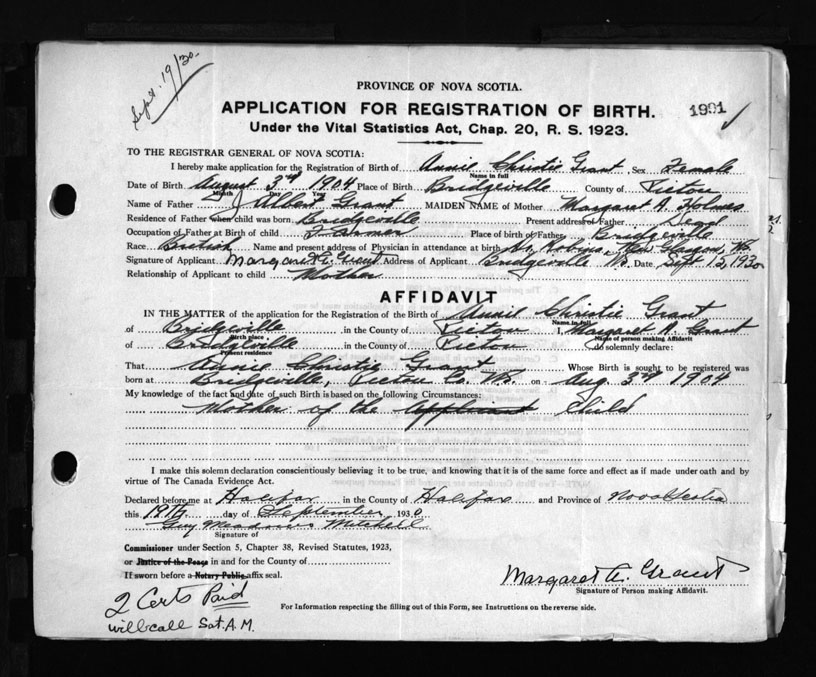 Sept. 19/30.
PROVINCE OF NOVA SCOTIA.
APPLICATION FOR REGISTRATION OF BIRTH. 1991 ✓
Under the Vital Statistics Act, Chap. 20, R. S. 1923.
TO THE REGISTRAR GENERAL OF NOVA SCOTIA:
I hereby make application for the Registration of Birth of Annie Christie Grant Sex Female
Name in full
Date of Birth August 3rd 1904 Place of Birth Bridgeville County of Pictou
Month Day Year
Name of Father Albert Grant MAIDEN NAME of Mother Margaret A. Holmes
Residence of Father when child was born Bridgeville Present address of Father Dead
Occupation of Father at Birth of child Farmer Place of birth of Father Bridgeville
Race British Name and present address of Physician in attendance at birth Dr. New Glasgow, N.S.
Signature of Applicant Margaret Grant Address of Applicant Bridgeville N.S. Date Sept 15, 1930
Relationship of Applicant to child Mother
AFFIDAVIT
IN THE MATTER of the application for the Registration of the Birth of Annie Christie Grant
Name in full
of Bridgeville in the County of Pictou I, Margaret A. Grant
Birth place Name of person making Affidavit
of Bridgeville in the County of Pictou do solemnly declare:
Present residence
That Annie Christie Grant Whose Birth is sought to be registered was
born at Bridgeville, Pictou Co. N.S. on Aug. 3rd 1904
My knowledge of the fact and date of such Birth is based on the following Circumstances:
Mother of the Applicant Child
I make this solemn declaration conscientiously believing it to be true, and knowing that it is of the same force and effect as if made under oath and by
virtue of The Canada Evidence Act.
Declared before me at Halifax in the County of Halifax and Province of Nova Scotia
this 19th day of September 1930
Guy Meadows Mitchell
Signature of
Commissioner under Section 5, Chapter 38, Revised Statutes, 1923,
or Justice of the Peace in and for the County of
If sworn before a Notary Public affix seal.
Margaret A. Grant
Signature of Person making Affidavit.
2 Certs Paid
will call Sat. A.M.
For Information respecting the filling out of this Form, see Instructions on the reverse side.